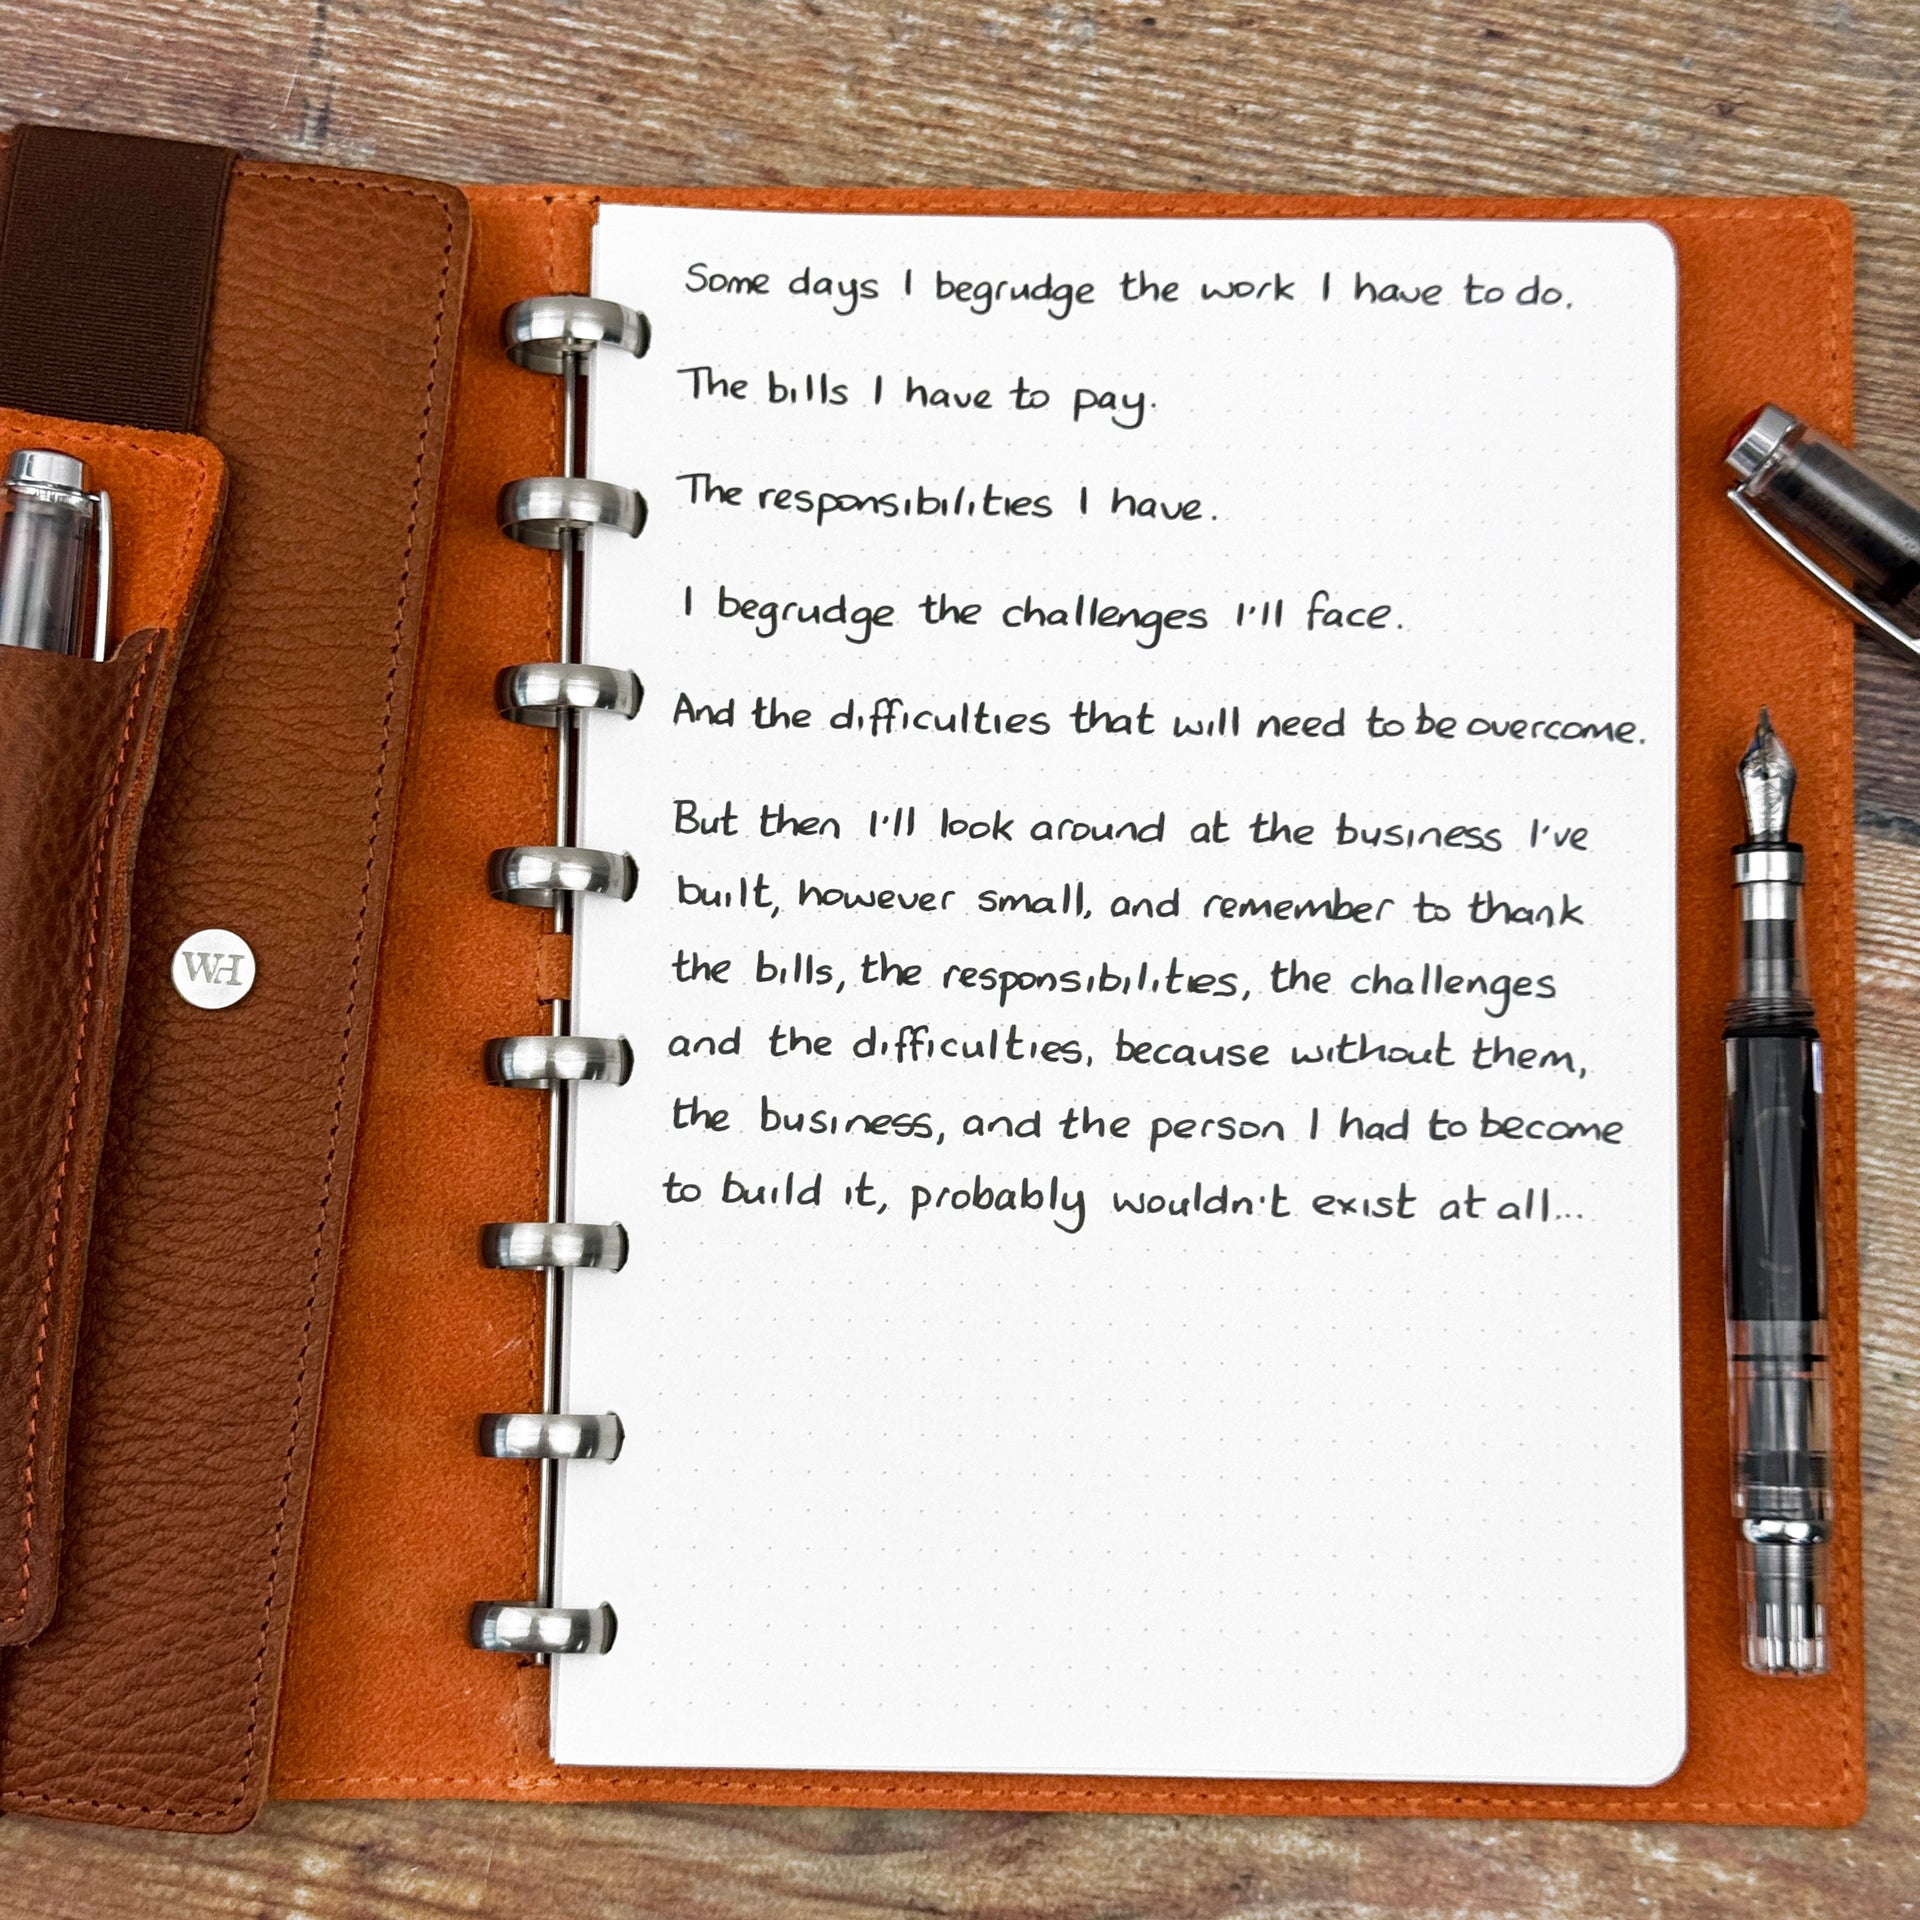 Some days I begrudge the work I have to do.
The bills I have to pay.
The responsibilities I have.
I begrudge the challenges I'll face.
And the difficulties that will need to be overcome.
But then I'll look around at the business I've
built, however small, and remember to thank
the bills, the responsibilities, the challenges
and the difficulties, because without them,
the business, and the person I had to become
to build it, probably wouldn't exist at all...
WH